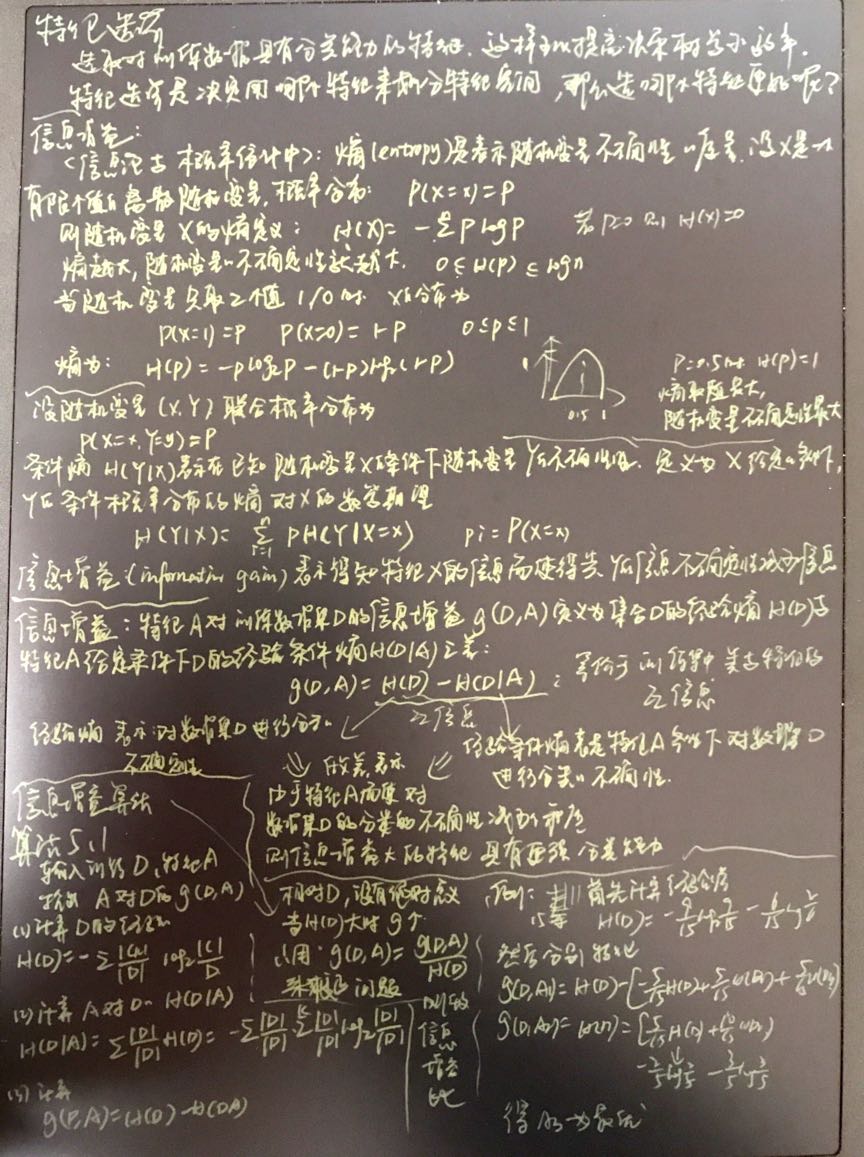 特征选择
选取对训练数据具有分类能力的特征. 这样可以提高决策树学习效率.
特征选择是决定用哪个特征来划分特征空间, 那么选哪个特征更好呢?
信息增益:
(信息论与概率统计中): 熵(entropy)是表示随机变量不确定性的度量. 设X是一个
有限个值的离散随机变量, 概率分布: P(X=x)=P
则随机变量X的熵定义: H(X)= -ΣP logP 若P=0 则 H(x)=0
熵越大, 随机变量的不确定性就越大. 0≤H(p)≤logn
当随机变量只取2个值 1/0时 X的分布为
P(X=1)=P P(X=0)=1-P 0≤p≤1
熵为: H(p)=-plog₂p-(1-p)log₂(1-p)
1
0.5 1
P=0.5时 H(p)=1
熵取值最大,
随机变量不确定性最大
设随机变量(X,Y)联合概率分布为
P(X=x,Y=y)=P
条件熵 H(Y|X)表示在已知随机变量X的条件下随机变量Y的不确定性. 定义为X给定的条件下,
Y的条件概率分布的熵对X的数学期望
H(Y|X)= Σ PH(Y|X=x) pi=P(X=x)
信息增益:(information gain) 表示得知特征X的信息而使得类Y的信息不确定性减少信息
信息增益: 特征A对训练数据集D的信息增益 g(D,A)定义为集合D的经验熵H(D)与
特征A给定条件下D的经验条件熵H(D|A)之差:
g(D,A)=H(D)-H(D|A); 等价于训练集中类与特征的
互信息
互信息
经验熵 表示对数据集D进行分类的
不确定性
经验条件熵表是特征A条件下对数据集D
进行分类的不确定性.
做差, 表示
由于特征A而使对
数据集D的分类的不确定性减少的程度
则信息增益大的特征具有更强分类能力
信息增益算法
算法5.1
输入训练D,特征A
输出 A对D的g(D,A)
(1)计算D的经验熵
H(D)=-Σ|Ck|/|D| log₂|C|/D
(2)计算A对D的 H(D|A)
H(D|A)=Σ|D|/|D|H(D)=-Σ|D|/|D|Σ|D|/|D|log₂|D|/|D|
(3)计算
g(D,A)=H(D)-H(D|A)
相对D, 没有绝对意义
当H(D)大时 g↑
用: g(D,A)=g(D,A)/H(D)
来校正问题
叫做
信息
增益
比
例: 首先计算经验熵
15 H(D)=-9/15log9/15-6/15log6/15
然后分别特征
得A3为最优